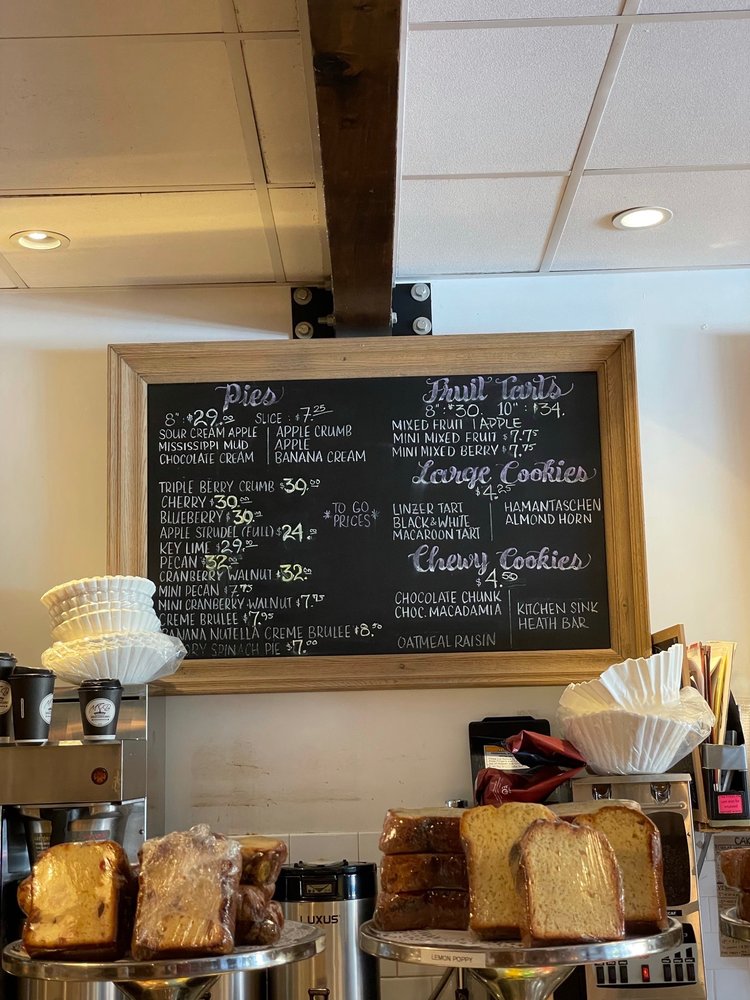 Pies
8": $29.00 SLICE: $7.25
SOUR CREAM APPLE
MISSISSIPPI MUD
CHOCOLATE CREAM
APPLE CRUMB
APPLE
BANANA CREAM
TRIPLE BERRY CRUMB $30.00
CHERRY $30.00
BLUEBERRY $30.00
APPLE STRUDEL (FULL) $24.00
KEY LIME $29.00
PECAN $32.00
CRANBERRY WALNUT $32.00
MINI PECAN $7.75
MINI CRANBERRY-WALNUT $7.75
CREME BRULEE $7.95
BANANA NUTELLA CREME BRULEE $8.50
SPINACH PIE $7.00
*TO GO
PRICES*
Fruit Tarts
8": $30. 10": $34.
MIXED FRUIT | APPLE
MINI MIXED FRUIT $7.75
MINI MIXED BERRY $7.95
Large Cookies
$4.25
LINZER TART
BLACK & WHITE
MACAROON TART
HAMANTASCHEN
ALMOND HORN
Chewy Cookies
$4.50
CHOCOLATE CHUNK
CHOC. MACADAMIA
OATMEAL RAISIN
KITCHEN SINK
HEATH BAR
LUXUS
LEMON POPPY